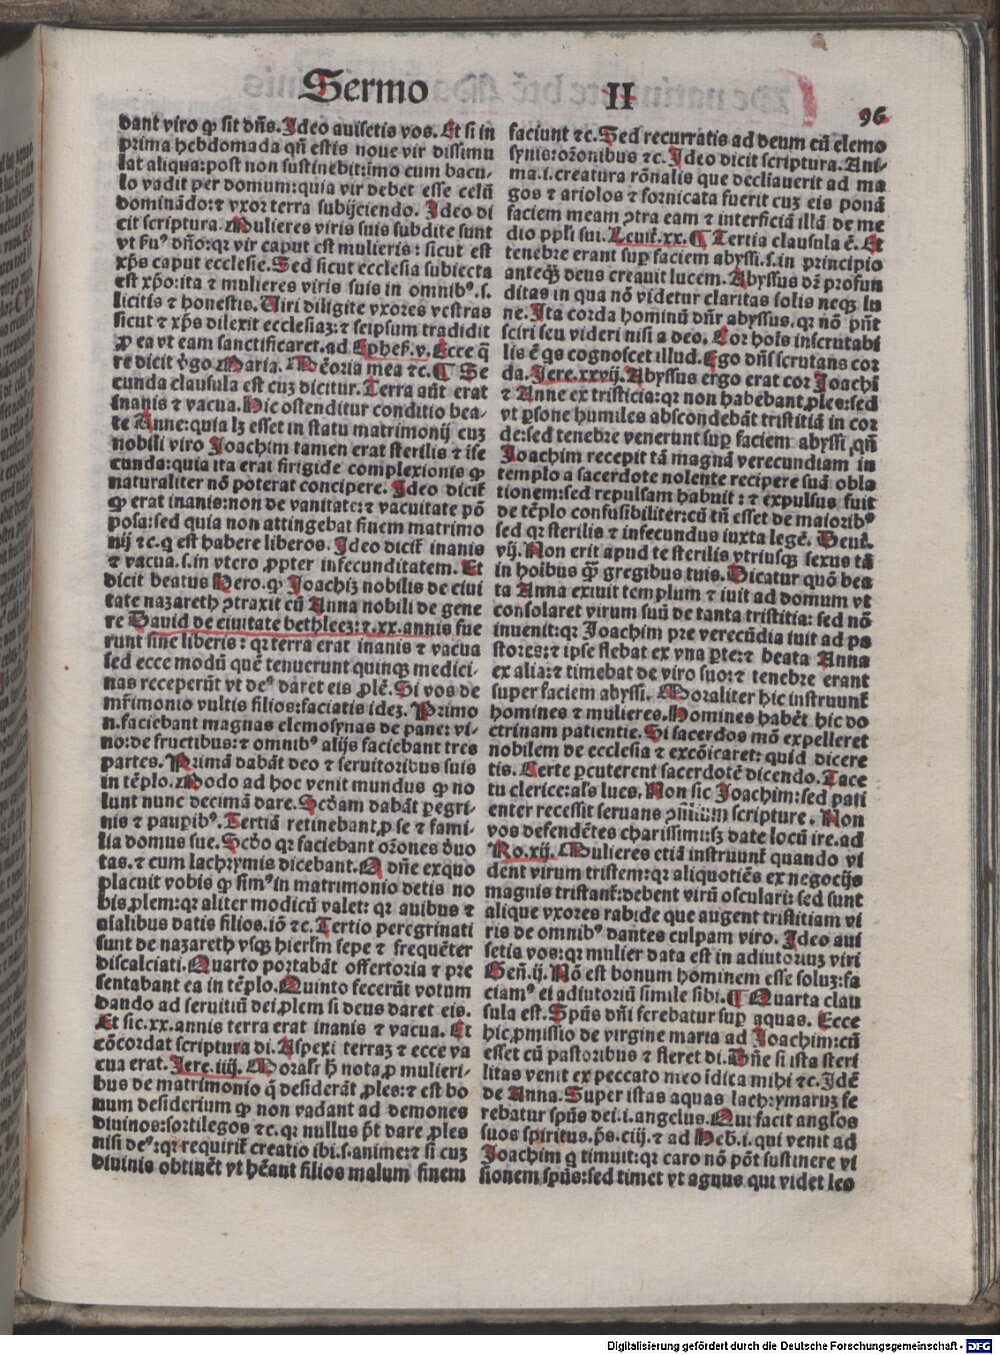 Sermo II
96
dant viro ꝙ sit dñs. Ideo auisetis vos. Et si in
prima hebdomada qñ estis noue vir dissimu
lat aliqua: post non sustinebit: imo cum bacu-
lo vadit per domum: quia vir debet esse celū
dominādo: ⁊ vxor terra subijciendo. Ideo di
cit scriptura. Mulieres viris suis subdite sunt
vt suꝰ dño: qꝛ vir caput est mulieris: sicut est
xp̄s caput ecclesie. Sed sicut ecclesia subiecta
est xp̄o: ita ⁊ mulieres viris suis in omnibꝰ. s.
licitis ⁊ honestis. Uiri diligite vxores vestras
sicut ⁊ xp̄s dilexit ecclesiaꝫ: ⁊ seipsum tradidit
ꝓ ea vt eam sanctificaret. ad Ephes. v. Ecce q̄
re dicit v̄go Maria. Mēoria mea ⁊c. ¶ Se
cunda clausula est cuꝫ dicitur. Terra aūt erat
inanis ⁊ vacua. Hic ostenditur conditio bea-
te Anne: quia lꝫ esset in statu matrimonij cuꝫ
nobili viro Joachim tamen erat sterilis ⁊ ife
cunda: quia ita erat firigide complexionis ꝙ
naturaliter nō poterat concipere. Ideo dicit̄
ꝙ erat inanis: non de vanitate: ⁊ vacuitate pō
posa: sed quia non attingebat finem matrimo
nij ⁊c. q est habere liberos. Ideo dicit̄ inanis
⁊ vacua. s. in vtero ꝓpter infecunditatem. Et
dicit beatus Hero. ꝙ Joachiꝫ nobilis de ciui
tate nazareth ꝯtraxit cū Anna nobili de gene
re Dauid de ciuitate bethleeꝫ: ⁊ .xx. annis fue
runt sine liberis: qꝛ terra erat inanis ⁊ vacua
sed ecce modū quē tenuerunt quinqꝫ medici-
nas receperūt vt deꝰ daret eis ꝓlē. Si vos de
mr̄imonio vultis filios: faciatis ideꝫ. Primo
n. faciebant magnas elemosynas de pane: vi-
no: de fructibus: ⁊ omnibꝰ alijs faciebant tres
partes. Primā dabāt deo ⁊ seruitoribus suis
in tēplo. Modo ad hoc venit mundus ꝙ no
lunt nunc decimā dare. Scd̄am dabāt ꝑegri-
nis ⁊ pauꝑibꝰ. Tertiā retinebant ꝓ se ⁊ fami-
lia domus sue. Scd̄o qꝛ faciebant or̄ones deuo
tas. ⁊ cum lachrymis dicebant. O dn̄e exquo
placuit vobis ꝙ simꝰ in matrimonio detis no
bis ꝓlem: qꝛ aliter modicū valet: qꝛ auibus ⁊
aīalibus datis filios. iō ⁊c. Tertio peregrinati
sunt de nazareth vsqꝫ hierl̄m sepe ⁊ frequēter
discalciati. Quarto portabāt offertoria ⁊ pre
sentabant ea in tēplo. Quinto fecerūt votum
dando ad seruitiū dei ꝓlem si deus daret eis.
Et sic .xx. annis terra erat inanis ⁊ vacua. Et
cōcordat scriptura di. Aspexi terraꝫ ⁊ ecce va
cua erat. Jere. iiij. Moralr̄ h̄ nota ꝓ mulieri-
bus de matrimonio q̄ desiderāt ꝓles: ⁊ est bo
num desiderium ꝙ non vadant ad demones
diuinos: sortilegos ⁊c. qꝛ nullus pōt dare ꝓles
nisi deꝰ: qꝛ requirit̄ creatio ibi. s. anime: ⁊ si cuꝫ
diuinis obtinēt vt hēant filios malum finem
faciunt ⁊c. Sed recurratis ad deum cū elemo
synis: or̄onibus ⁊c. Ideo dicit scriptura. Ani-
ma. i. creatura rōnalis que decliauerit ad ma
gos ⁊ ariolos ⁊ fornicata fuerit cuꝫ eis ponā
faciem meam ꝯtra eam ⁊ interficiā illā de me
dio ppl̄i sui. Leuit̄. xx. ¶ Tertia clausula ē. Et
tenebre erant suꝑ faciem abyssi. s. in principio
anteqꝫ deus creauit lucem. Abyssus dr̄ profun
ditas in qua nō videtur claritas solis neqꝫ lu
ne. Ita corda hominū dn̄r abyssus. qꝛ nō pn̄t
sciri seu videri nisi a deo. Cor hoīs inscrutabi
lis ē qs cognoscet illud. Ego dn̄s scrutans cor
da. Jere. xxvij. Abyssus ergo erat cor Joachi
⁊ Anne ex tristicia: qꝛ non habebant ꝓles: sed
vt ꝑsone humiles abscondebāt tristitiā in cor
de: sed tenebre venerunt suꝑ faciem abyssi qn̄
Joachim recepit tā magnā verecundiam in
templo a sacerdote nolente recipere suā obla
tionem: sed repulsam habuit: ⁊ expulsus fuit
de tēplo confusibiliter: cū tn̄ esset de maioribꝰ
sed qꝛ sterilis ⁊ infecundus iuxta legē. Deut̄.
vij. Non erit apud te sterilis vtriusqꝫ sexus tā
in hoībus qꝫ gregibus tuis. Dicatur quō bea
ta Anna exiuit templum ⁊ iuit ad domum vt
consolaret virum suū de tanta tristitia: sed nō
inuenit: qꝛ Joachim pre verecūdia iuit ad pa
stores: ⁊ ipse flebat ex vna ꝑte: ⁊ beata Anna
ex alia: ⁊ timebat de viro suo: ⁊ tenebre erant
super faciem abyssi. Moraliter hic instruunt̄
homines ⁊ mulieres. Homines habēt hic do
ctrinam patientie. Si sacerdos mō expelleret
nobilem de ecclesia ⁊ excōicaret: quid dicere
tis. Certe ꝑcuterent sacerdotē dicendo. Tace
tu clerice: al̄s lues. Non sic Joachim: sed pati
enter recessit seruans scripture. Non
vos defendētes charissimi: sꝫ date locū ire. ad
Ro. xij. Mulieres etiā instruunt̄ quando vi
dent virum tristem: qꝛ aliquotiēs ex negocijs
magnis tristant̄: debent virū osculari: sed sunt
alique vxores rabide que augent tristitiam vi
ris de omnibꝰ dantes culpam viro. Ideo aui
setis vos: qꝛ mulier data est in adiutoriuꝫ viri
Gen̄. ij. Nō est bonum hominem esse soluꝫ: fa
ciamꝰ ei adiutoriū simile sibi. ¶ Quarta clau
sula est. Spūs dn̄i ferebatur suꝑ aquas. Ecce
hic ꝓmissio de virgine maria ad Joachim: cū
esset cū pastoribus ⁊ fleret di. Dn̄e si ista steri
litas venit ex peccato meo īdica mihi ⁊c. Idē
de Anna. Super istas aquas lachrymaruꝫ fe
rebatur spūs dei. i. angelus. Qui facit angl̄os
suos spiritus. ps̄. ciij. ⁊ ad Heb̄. i. qui venit ad
Joachim q timuit: qꝛ caro nō pōt sustinere vi
sionem spūs: sed timet vt agnus qui videt leo
Digitalisierung gefördert durch die Deutsche Forschungsgemeinschaft - DFG